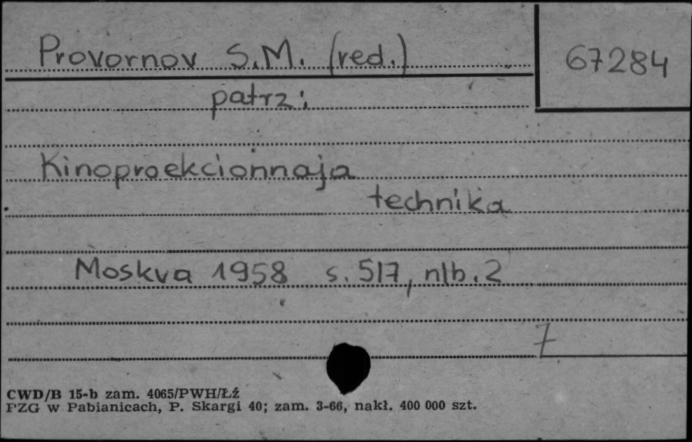 Provornov S.M. (red.)
67284
patrz:
Kinoproekcionnaja
technika
Moskva 1958 s. 517, nlb. 2
7
CWD/B 15-b zam. 4065/PWH/Łź
PZG w Pabianicach, P. Skargi 40; zam. 3-66, nakł. 400 000 szt.